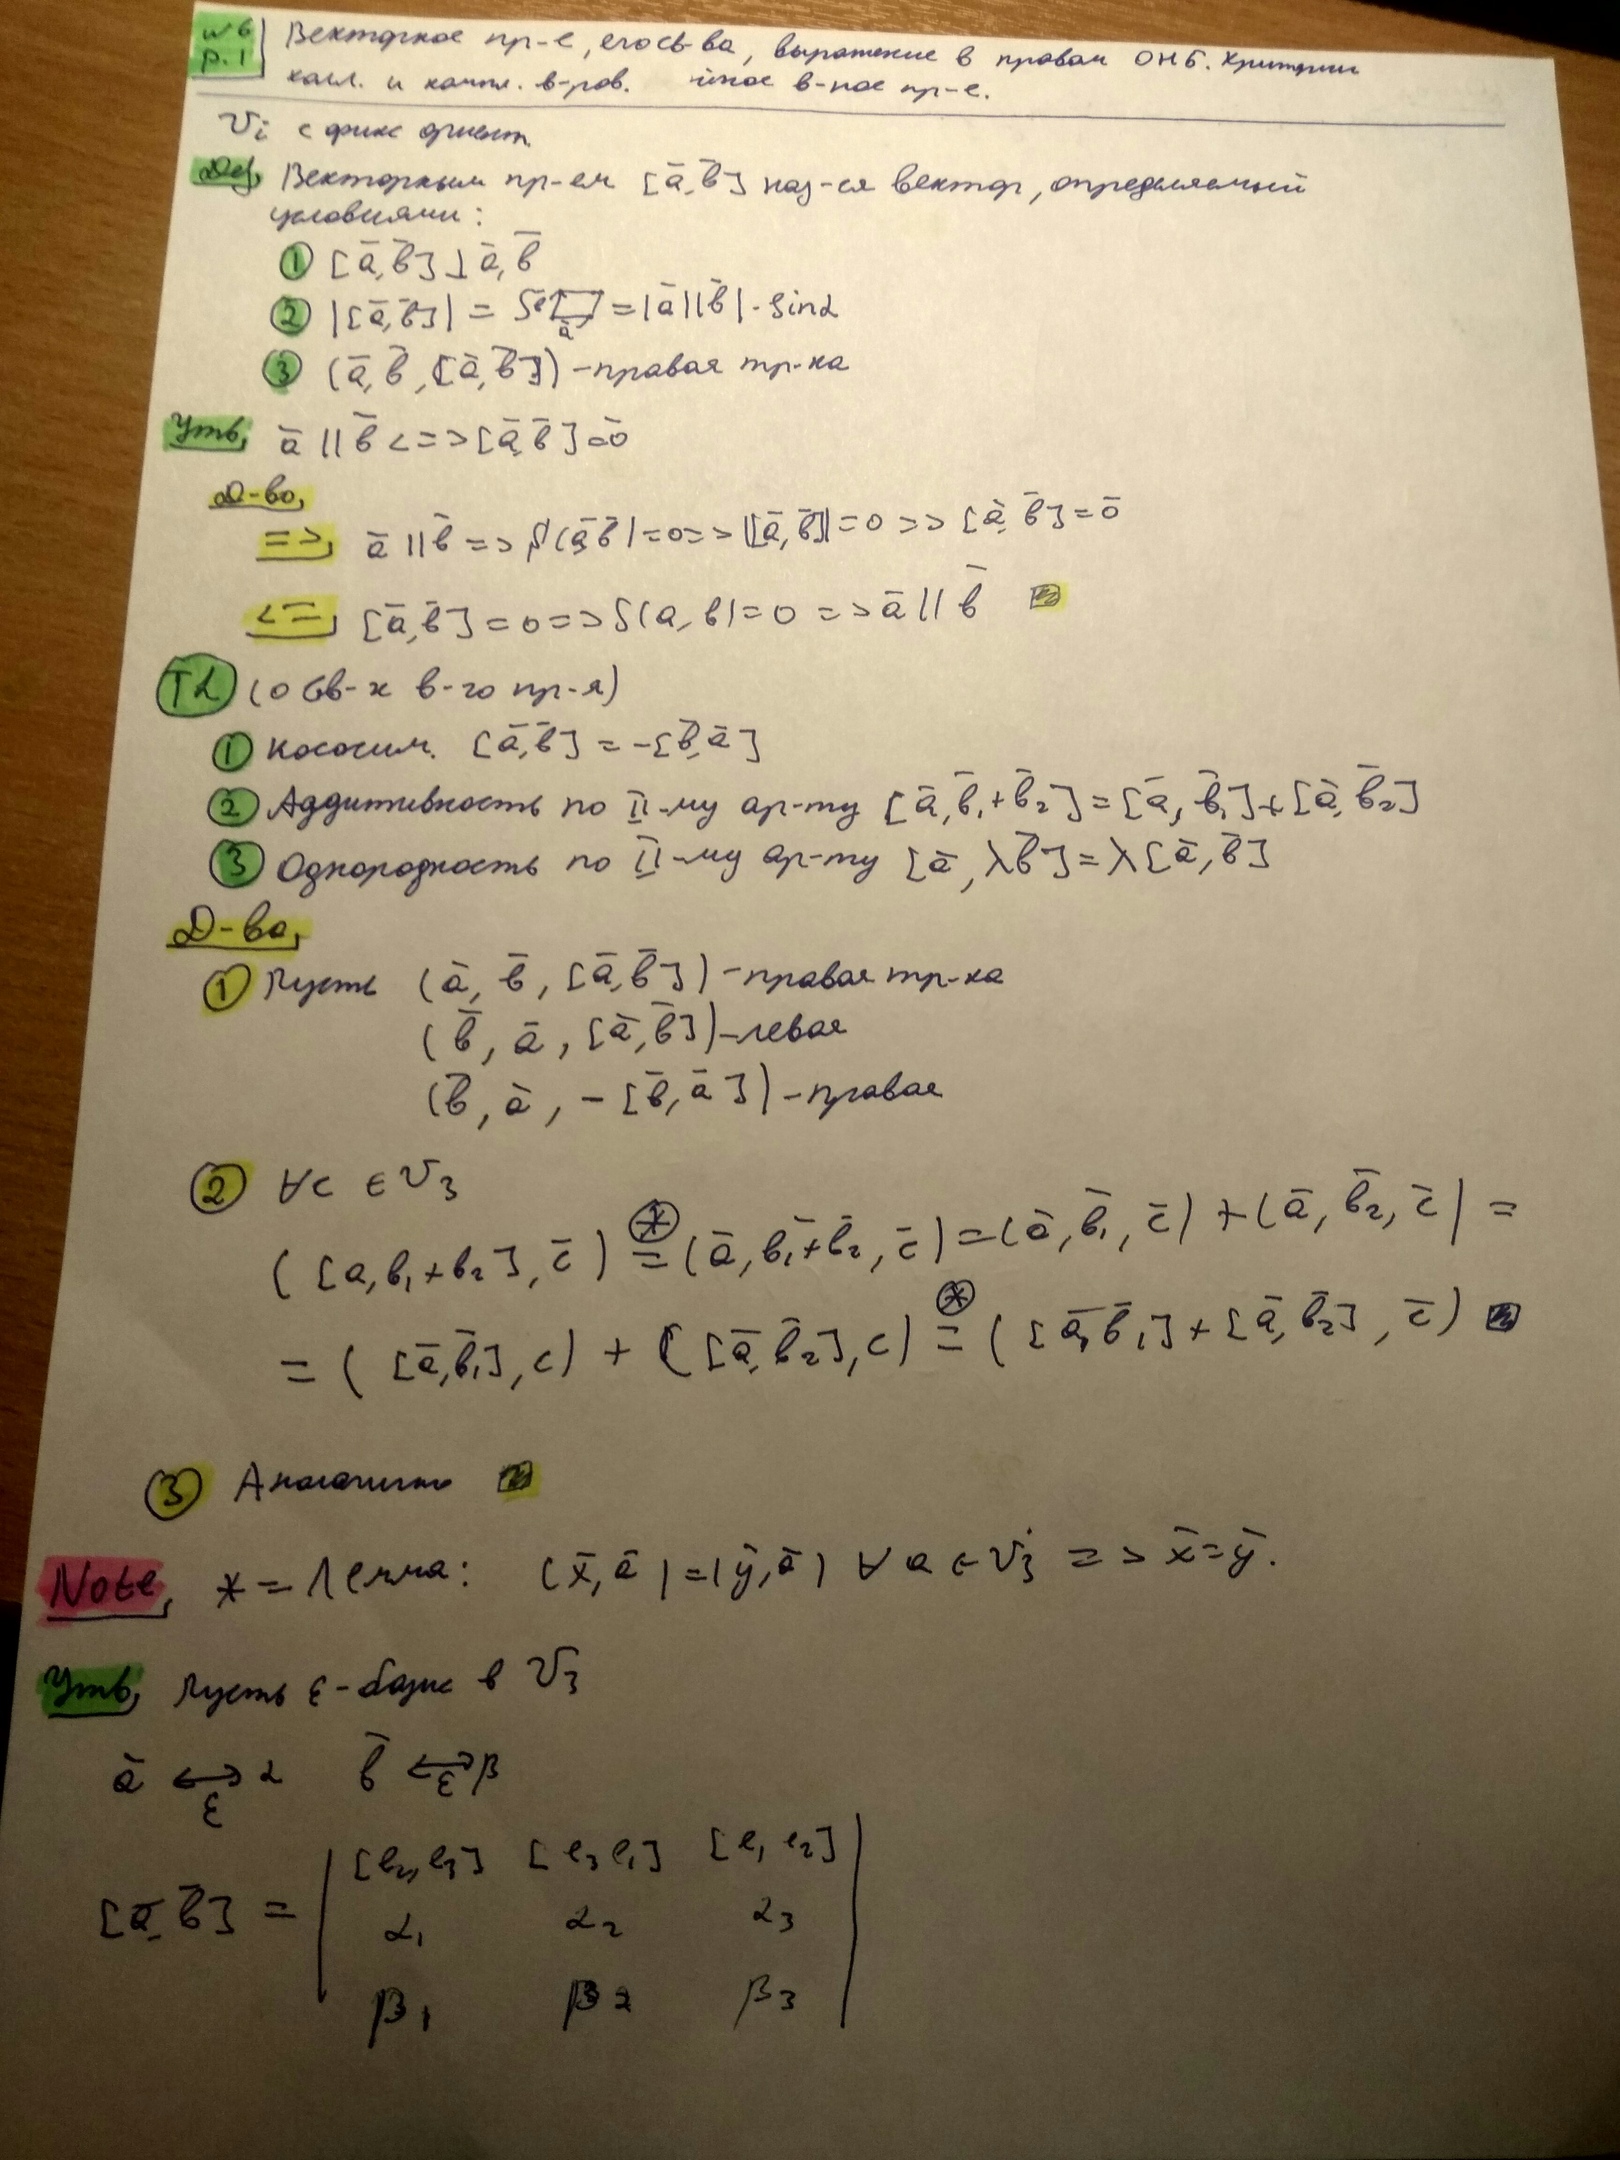 №6 Векторное пр-е, его св-ва, выражение в правом ОНБ. Критерии
p.1 колл. и компл. в-ров. -йное в-ное пр-е.
V_i с фикс ориент.
Def, Векторным пр-ем [ā,b̄] наз-ся вектор, определяемый
условиями:
① [ā,b̄] ⊥ ā,b̄
② |[ā,b̄]| = S = |ā||b̄|·sinα
③ (ā,b̄,[ā,b̄]) - правая тр-ка
Утв, ā || b̄ <=> [ā,b̄] = ō
Д-во,
=>, ā || b̄ => S(ā,b̄) = 0 => |[ā,b̄]| = 0 => [ā,b̄] = ō
<=, [ā,b̄] = 0 => S(a,b) = 0 => ā || b̄
T1 (о св-х в-го пр-я)
① Кососим. [ā,b̄] = -[b̄,ā]
② Аддитивность по II-му ар-ту [ā,b̄₁+b̄₂] = [ā,b̄₁] + [ā,b̄₂]
③ Однородность по II-му ар-ту [ā,λb̄] = λ[ā,b̄]
Д-во,
① Пусть (ā,b̄,[ā,b̄]) - правая тр-ка
(b̄,ā,[ā,b̄]) - левая
(b̄,ā,-[b̄,ā]) - правая
② ∀c ∈ V₃
([a,b₁+b₂],c̄) =^⊛ (ā,b̄₁+b̄₂,c̄) = (ā,b̄₁,c̄) + (ā,b̄₂,c̄) =
= ([ā,b̄₁],c) + ([ā,b̄₂],c) =^⊛ ([ā,b̄₁]+[ā,b̄₂],c̄)
③ Аналогично
Note, * = Лемма: (x̄,ā) = (ȳ,ā) ∀a ∈ V₃ => x̄ = ȳ.
Утв, Пусть ε - базис в V₃
ā ↔_ε α b̄ ↔_ε β
[e₂,e₃] [e₃ e₁] [e₁ e₂]
[ā,b̄] = | α₁ α₂ α₃ |
β₁ β₂ β₃